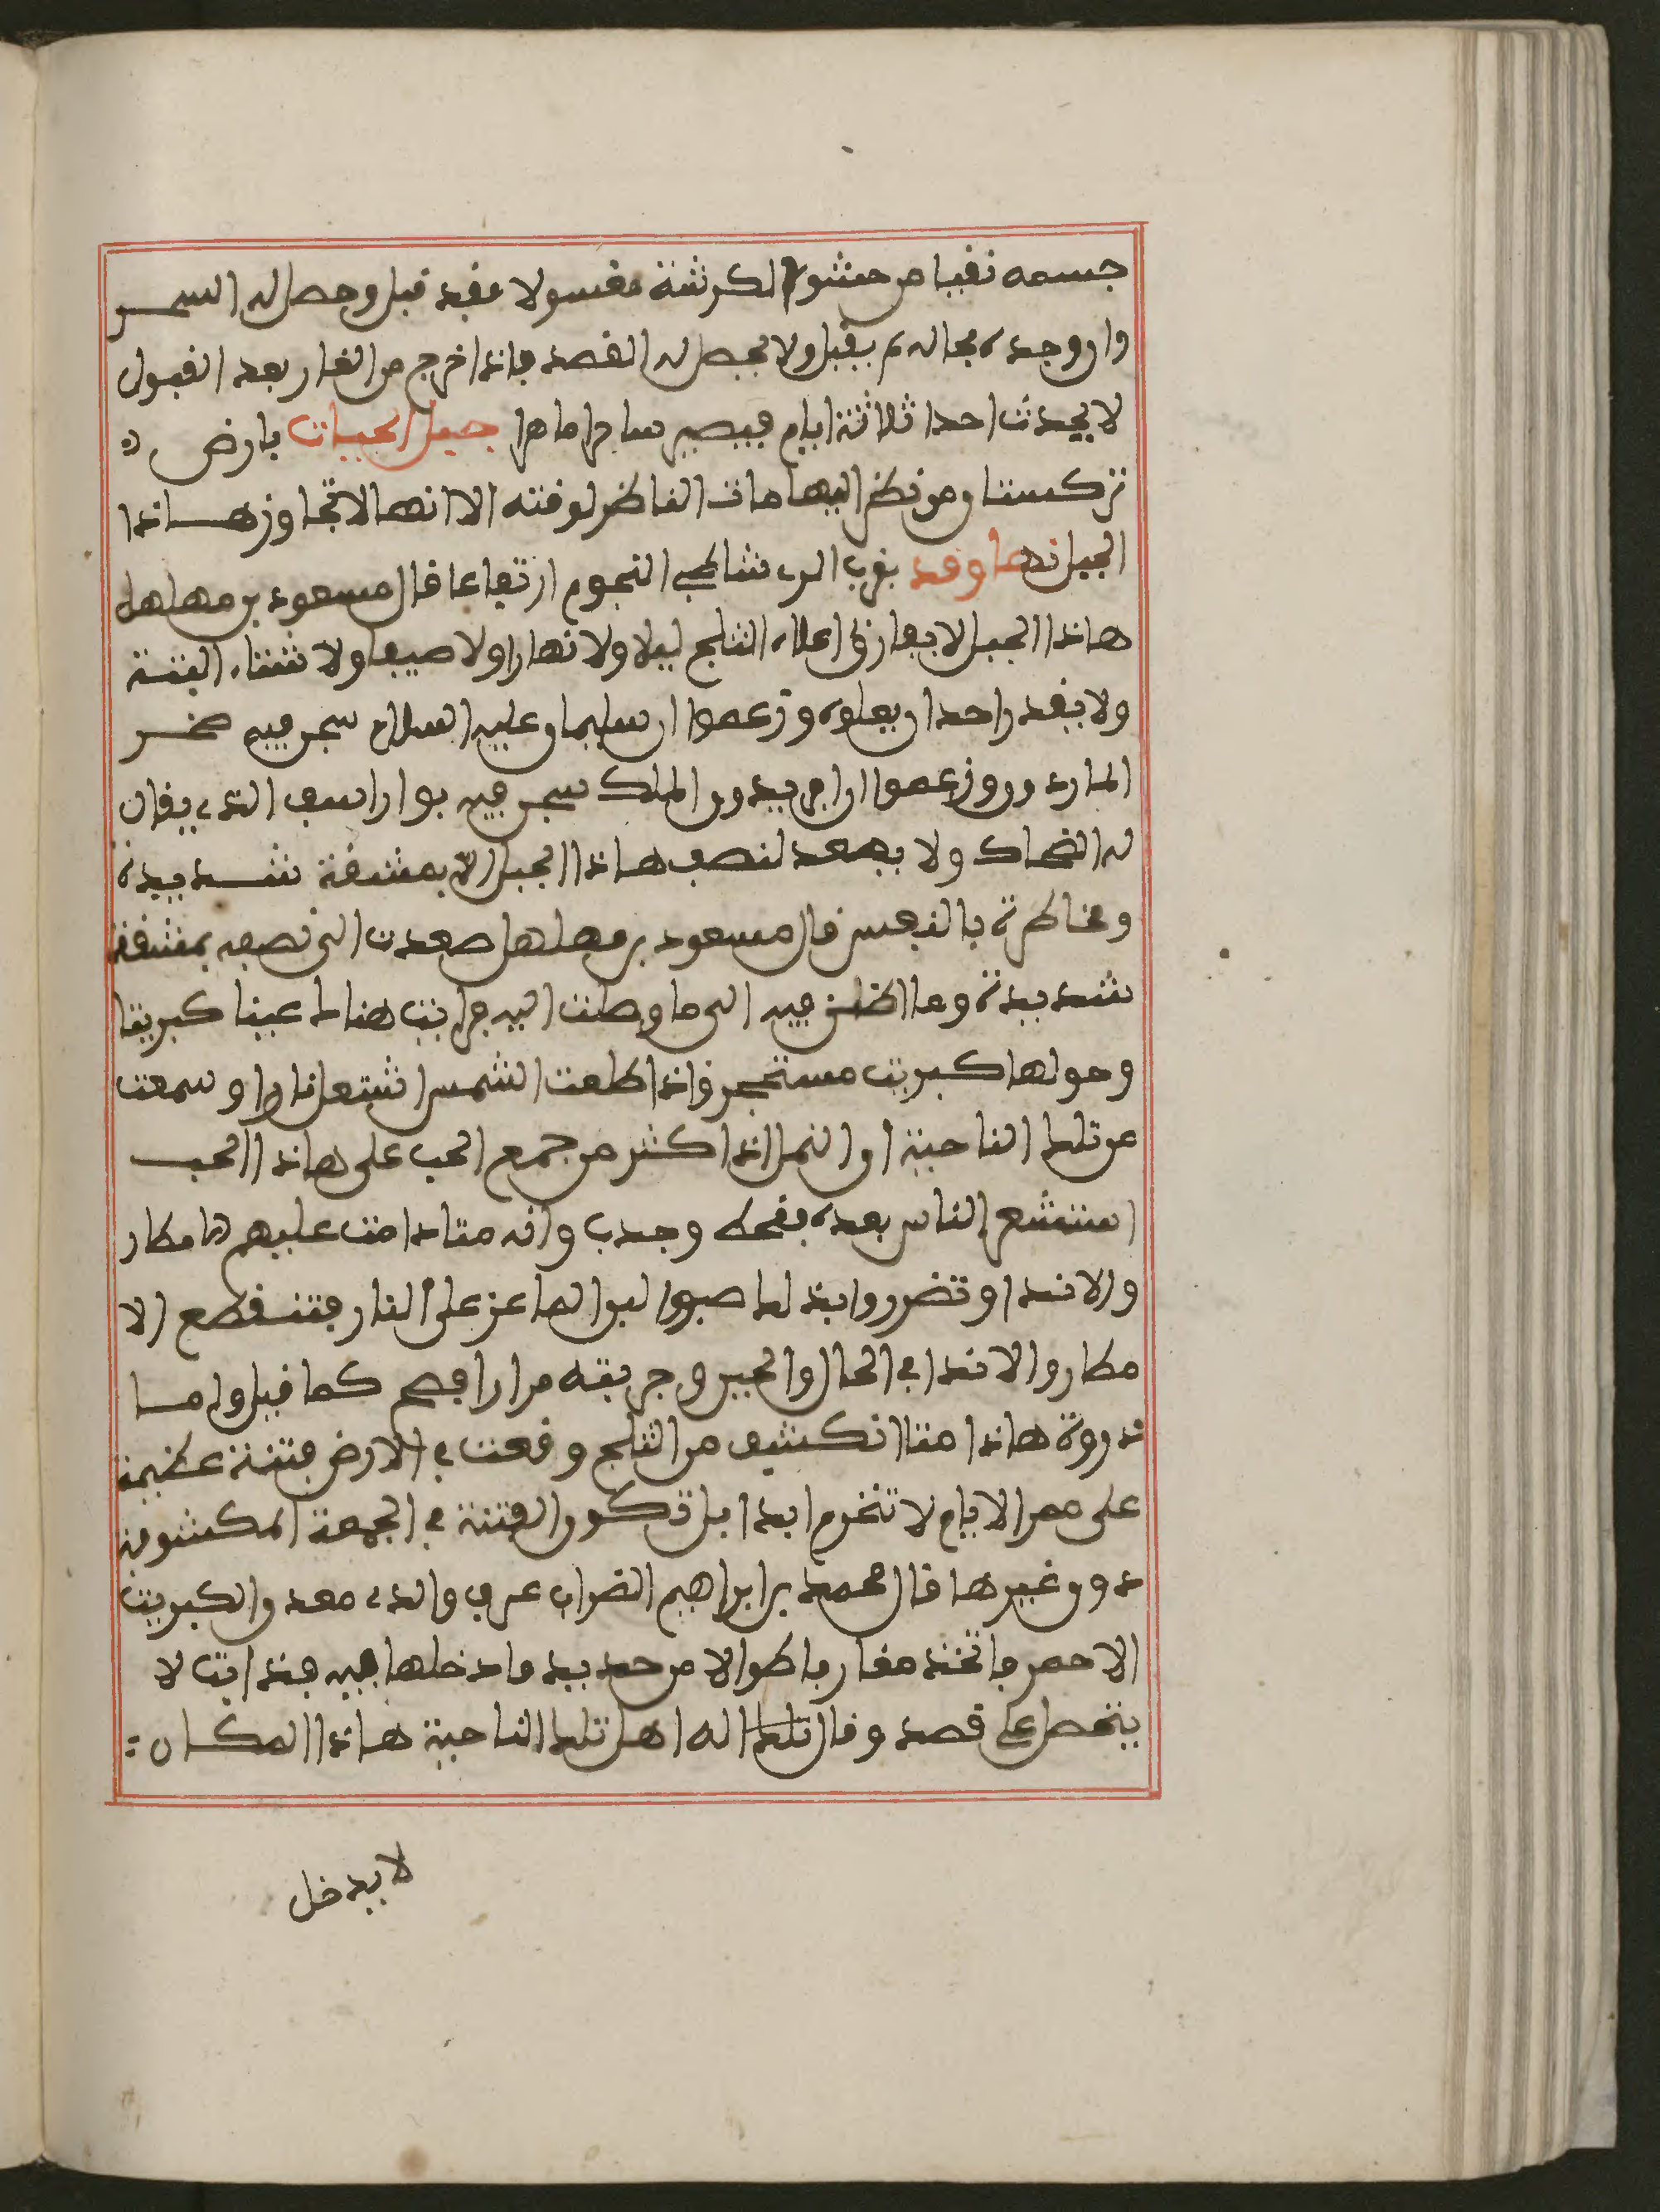 جسمه نقيا من حشو الكرشة مغسولا فقد قبل وحصل له السحر
وان وجده بحاله لم يقبل ولا يحصل له القصد فاذا خرج من الغار بعد القبول
لا يحدث احدا ثلاثة ايام فيصير ساحرا ماهرا جبل الحيات بارض
تركستان من نظر اليها مات الناظر لوقته الا انها لا تتجاوز هاذا
الجبل نهاوند بقرب الري شاطح النجوم ارتفاعا قال مسعود بن مهلهل
هاذا الجبل لا يفارق اعلاه الثلج ليلا ولا نهارا ولا صيفا ولا شتاء البتة
ولا يقدر احد ان يعلوه وزعموا ان سليمان عليه السلام سجن فيه صخر
المارد وزعموا ان افريدون الملك سجن فيه بواراسف الذي يقال
له الضحاك ولا يصعد لنصف هاذا الجبل الا بمشقة شديدة
ومخاطرة بالنفس قال مسعود بن مهلهل صعدت الى نصفه بمشقة
شديدة وما اظن فيه الى ما وصلت اليه فرايت هناك عينا كبريتا
وحولها كبريت مستحجر فاذا طلعت الشمس اشتعل نارا وسمعت
من تلك الناحية ان النمل اذا كثر من جمع الحب على هاذا الحب
استشعر الناس بعده بقحط وجدب وانه متا دامت عليهم الامطار
والانداو تضرروا بذلك صبوا لبن الماعز على النار فتنقطع الا
مطار والاندا في الحال والحين وجربته مرارا فصح كما قيل واما
ذروة هاذا متا انكشف من الثلج وقعت في الارض فتنة عظيمة
على ممر الايام لا تنخرم ابدا بل تكون الفتنة في الجهة المكشوفة
دون غيرها قال محمد بن ابراهيم الضراب عرف والدي معدن الكبريت
الاحمر فاتخذ مغارف طوالا من حديد فادخلها فيه فذابت لا
يتحصل على قصد وقال تلك اله اهل تلك الناحية هاذا المكان
لا يدخل